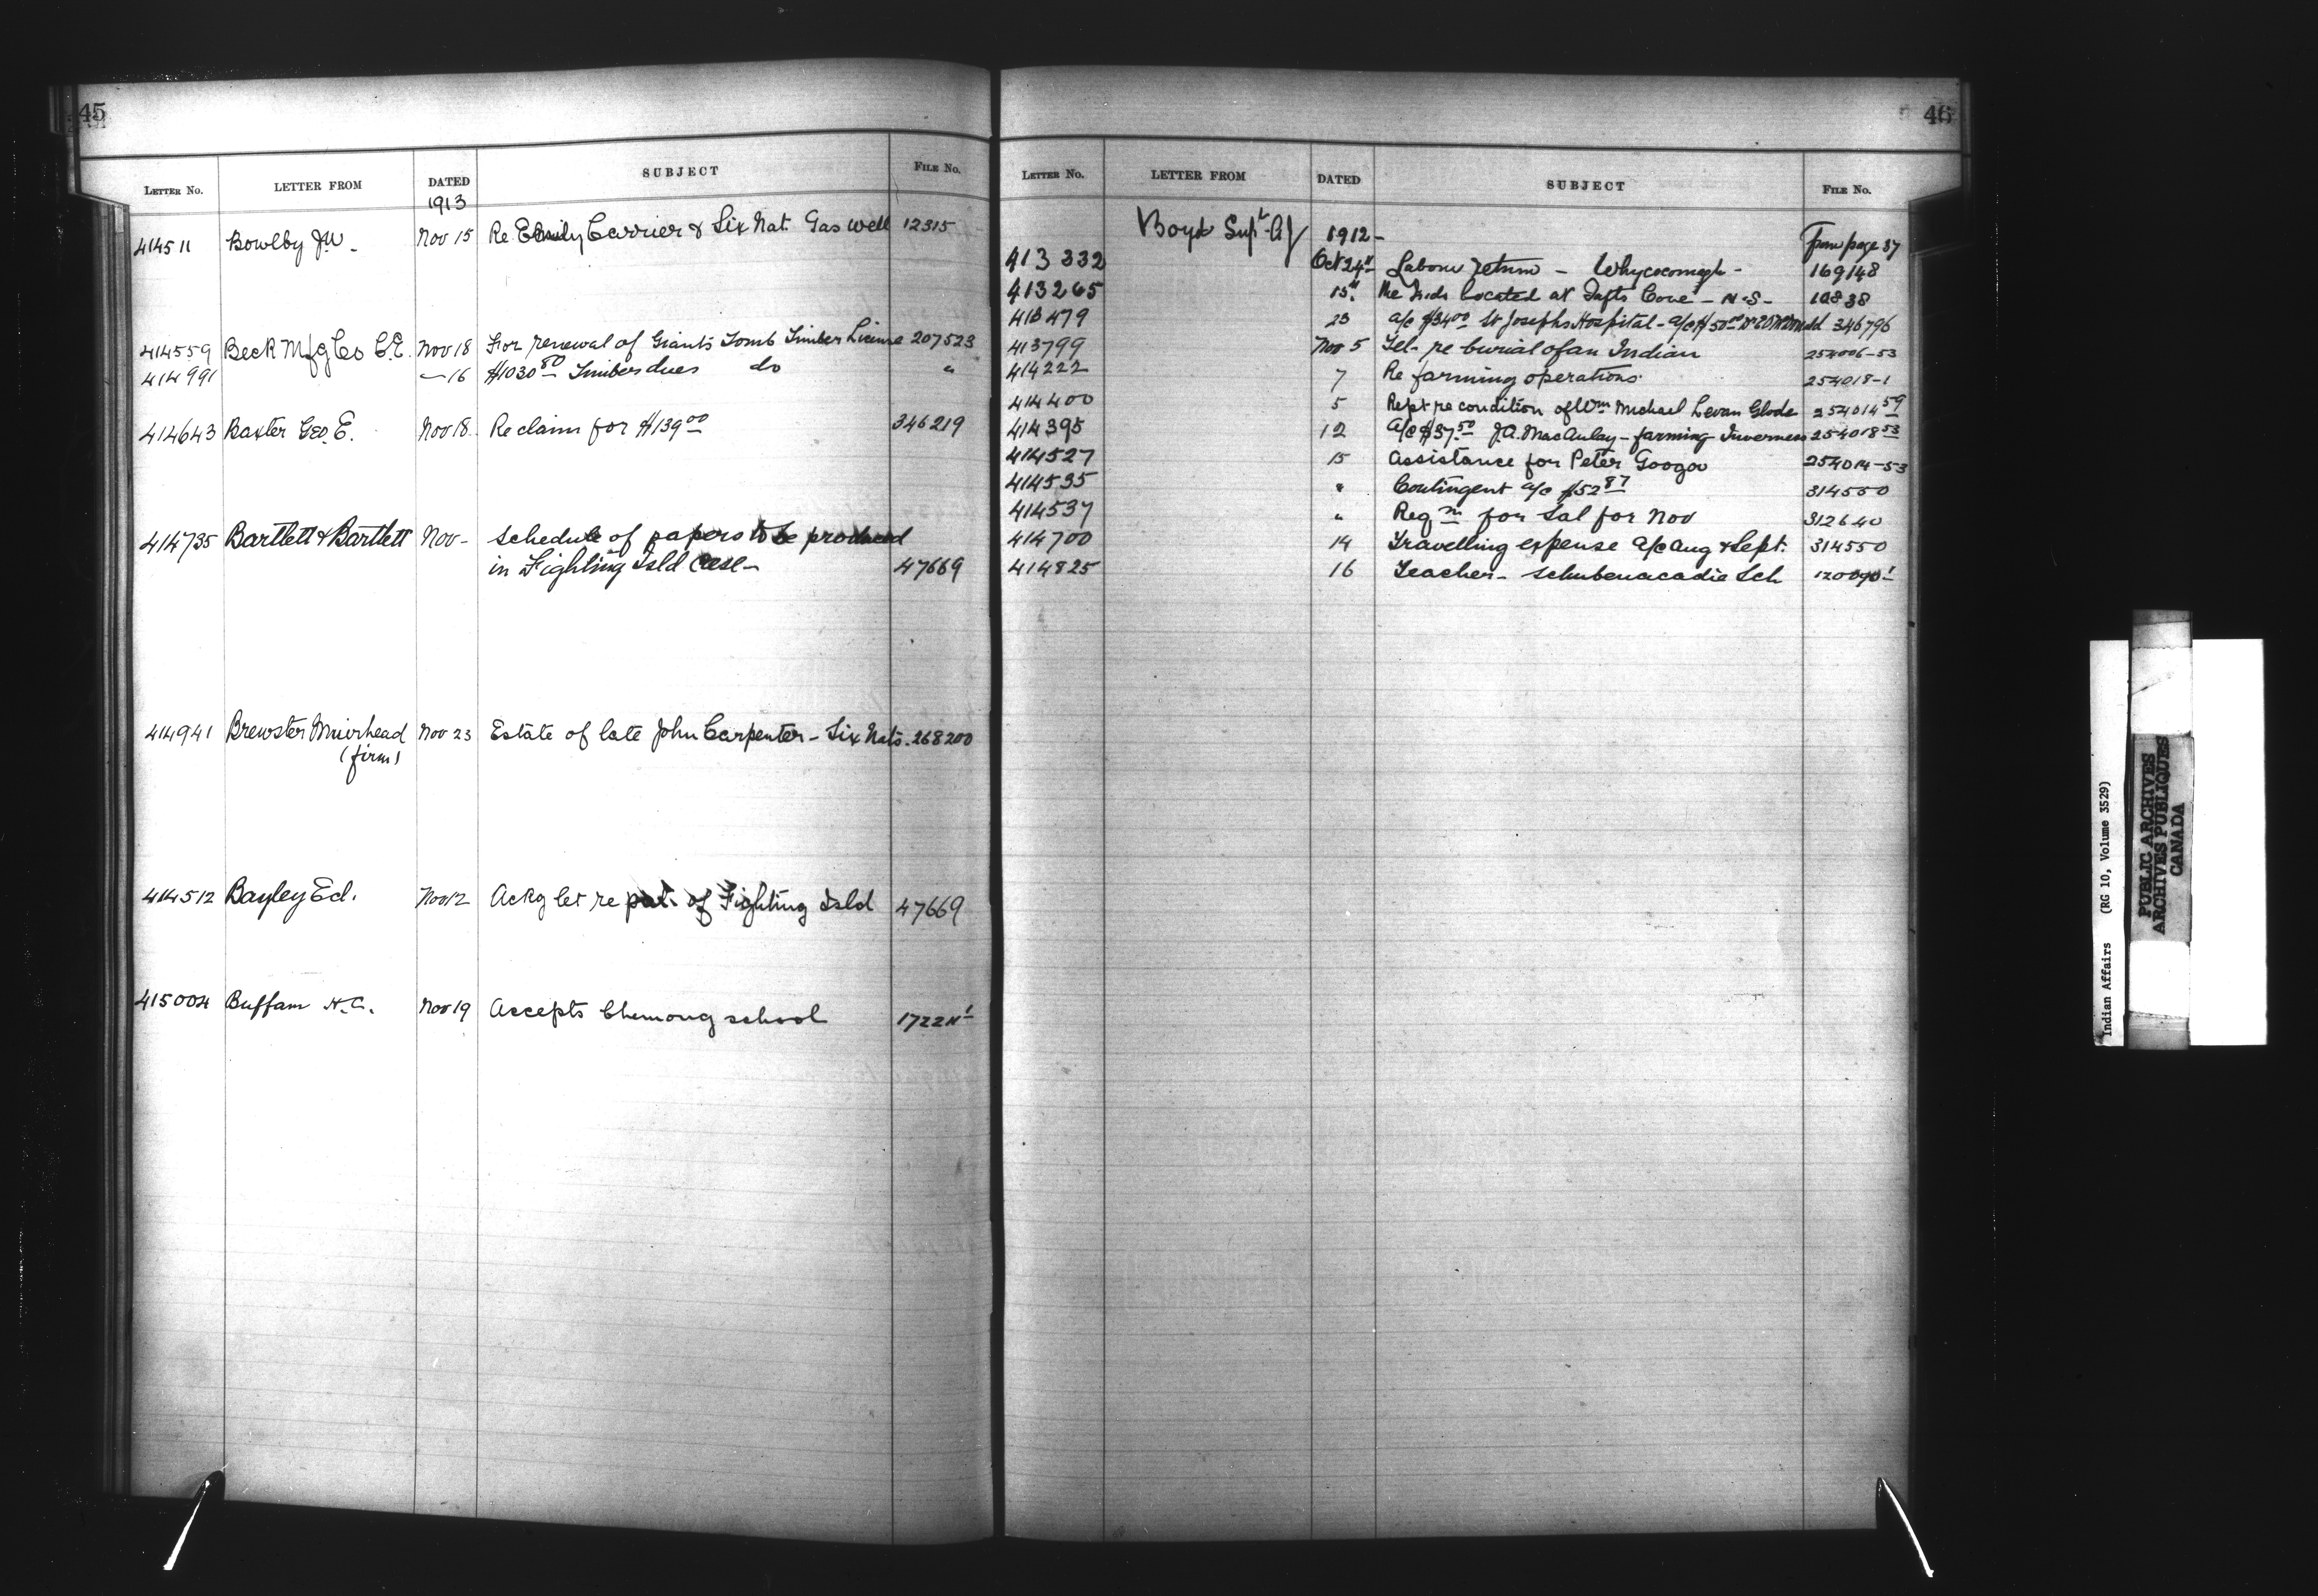 45
LETTER No. LETTER FROM DATED SUBJECT FILE No.
1913
414511 Bowlby J.W. Nov 15 Re Emily Carrier & Six Nat. Gas well 12315
414559 Beck Mfg Co C.E. Nov 18 For renewal of Giants Tomb Timber License 207523
414991 — 16 $1030 80 Timber dues do "
414643 Baxter Geo. E. Nov 18 Re claim for $139 00 346219
414735 Bartlett & Bartlett Nov - Schedule of papers to be produced
in Fighting Isld Case - 47669
414941 Brewster Muirhead Nov 23 Estate of late John Carpenter - Six Nats. 268200
(firm)
414512 Bayley Ed. Nov 12 Ackg let re pat. of Fighting Isld 47669
415004 Buffam Nov 19 Accepts Chemong school
46
LETTER No. LETTER FROM DATED SUBJECT FILE No.
Boyd Supt 1912- From page 37
413332 Oct 24" Labour return - Whycocomagh - 169148
413265 15" Re Inds located at Tufts Cove - N.S- 10838
413479 23 a/c $34 00 St Josephs Hospital - a/c $50 00 346796
413799 Nov 5 Tel- re burial of an Indian 254006-53
414222 7 Re farming operations 254018-1
414400 5 Rept re condition of Wm Michael Levan Glode 254014 59
414395 12 a/c $37.50 J.A. MacAulay - farming Inverness 254018 53
414527 15 Assistance for Peter Googoo 254014-53
414535 " Contingent a/c $52 87 314550
414537 " Reqn for Sal for Nov 312640
414700 14 Travelling expense a/c Aug & Sept. 314550
414825 16 Teacher - Schubenacadie Sch
Indian Affairs (RG 10, Volume 3529)
PUBLIC ARCHIVES
ARCHIVES PUBLIQUES
CANADA